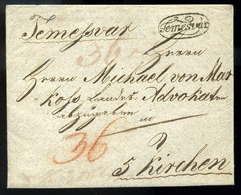 Temesvar
Temesvar
36
Herrn
Herrn Michael von Mar
koss Landes Advokaten
abzugeben
in
36
5 Kirchen